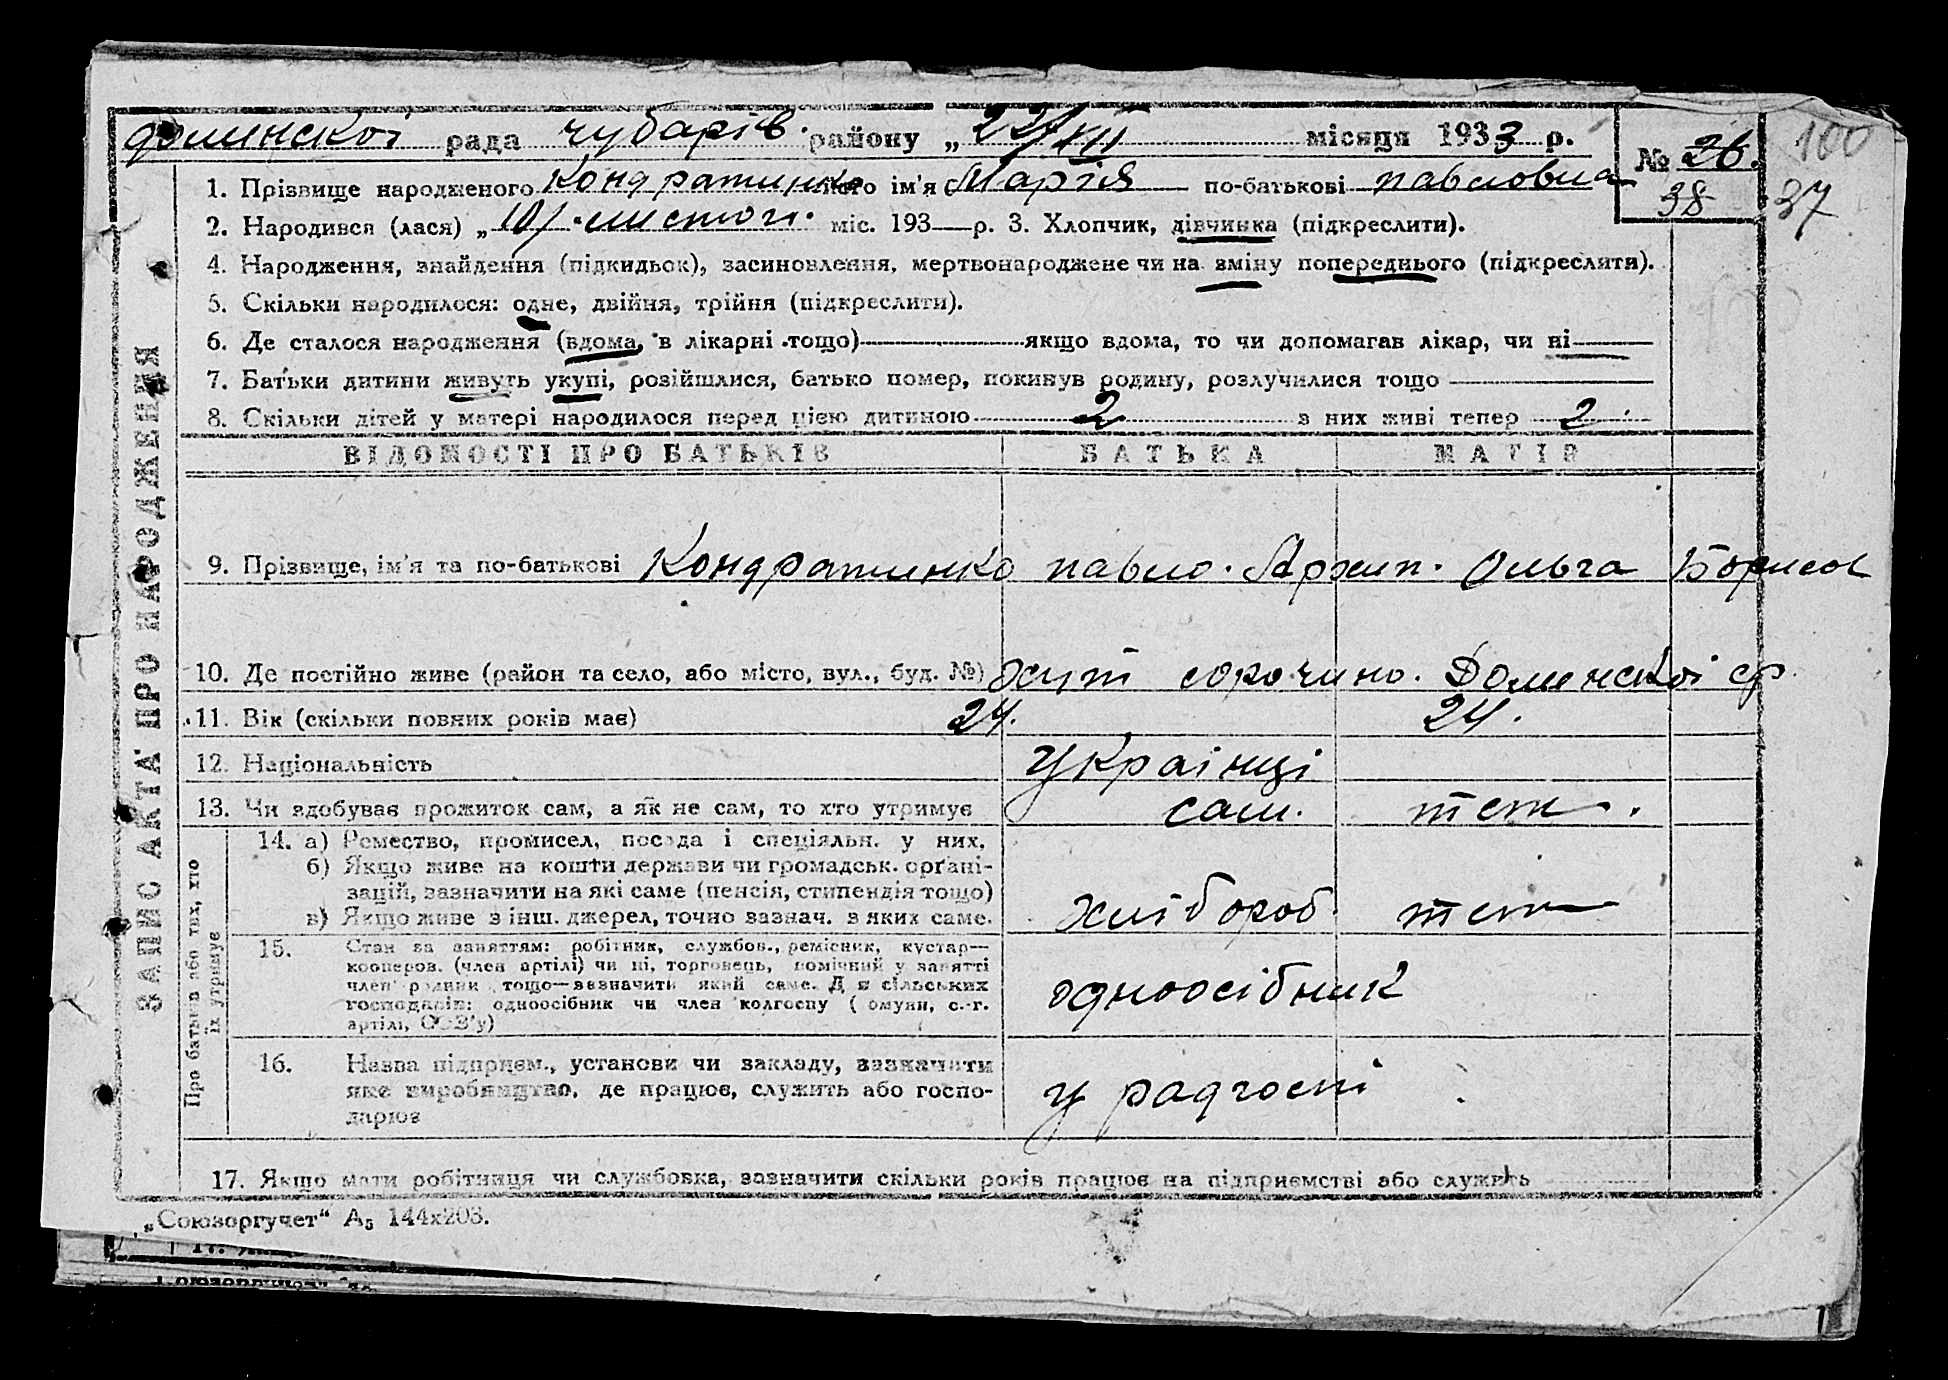 долинскої рада чубарів. району „ 22/XII місяця 1933 р.
№ 26.
100
38
37
1. Прізвище народженого Кондратинко його ім'я Марія по-батькові павловна
2. Народився (лася) „ 10/ листоп. міс. 193 р. 3. Хлопчик, дівчинка (підкреслити).
4. Народження, знайдення (підкидьок), засиновлення, мертвонароджене чи на зміну попереднього (підкреслити).
5. Скільки народилося: одне, двійня, трійня (підкреслити).
6. Де сталося народження (вдома, в лікарні тощо) якщо вдома, то чи допомагав лікар, чи ні
7. Батьки дитини живуть укупі, розійшлися, батько помер, покинув родину, розлучилися тощо
8. Скільки дітей у матері народилося перед цією дитиною 2 з них живі тепер 2.
ВІДОМОСТІ ПРО БАТЬКІВ БАТЬКА МАТІР
9. Прізвище, ім'я та по-батькові Кондратинко павло. Архип. Ольга Борисов
10. Де постійно живе (район та село, або місто, вул., буд. №) хут сорочино. Долинскої ср
11. Вік (скільки повних років має) 24. 24.
12. Національність українці
13. Чи здобуває прожиток сам, а як не сам, то хто утримує сам. теж.
14. а) Ремество, промисел, посада і спеціяльн. у них.
б) Якщо живе на кошти держави чи громадськ. орґані-
зацій, зазначити на які саме (пенсія, стипендія тощо)
в) Якщо живе з інш. джерел, точно зазнач. з яких саме. хлібороб теж
15. Стан за заняттям: робітник, службов., ремісник, кустар—
кооперов. (член артілі) чи ні, торговець, помічний у занятті
член родини тощо—зазначити який саме. Для сільських
господарів: одноосібник чи член колгоспу ( омуни, с.-г.
артілі, СОЗ'у) одноосібник
16. Назва підприєм., установи чи закладу, зазначити
яке виробництво, де працює, служить або госпо-
дарює у радгоспі
17. Якщо мати робітниця чи службовка, зазначити скільки років працює на підприємстві або служить
„Союзоргучет“ А5 144х203.
ЗАПИС АКТА ПРО НАРОДЖЕННЯ
Про батьків або тих, хто
їх утримує